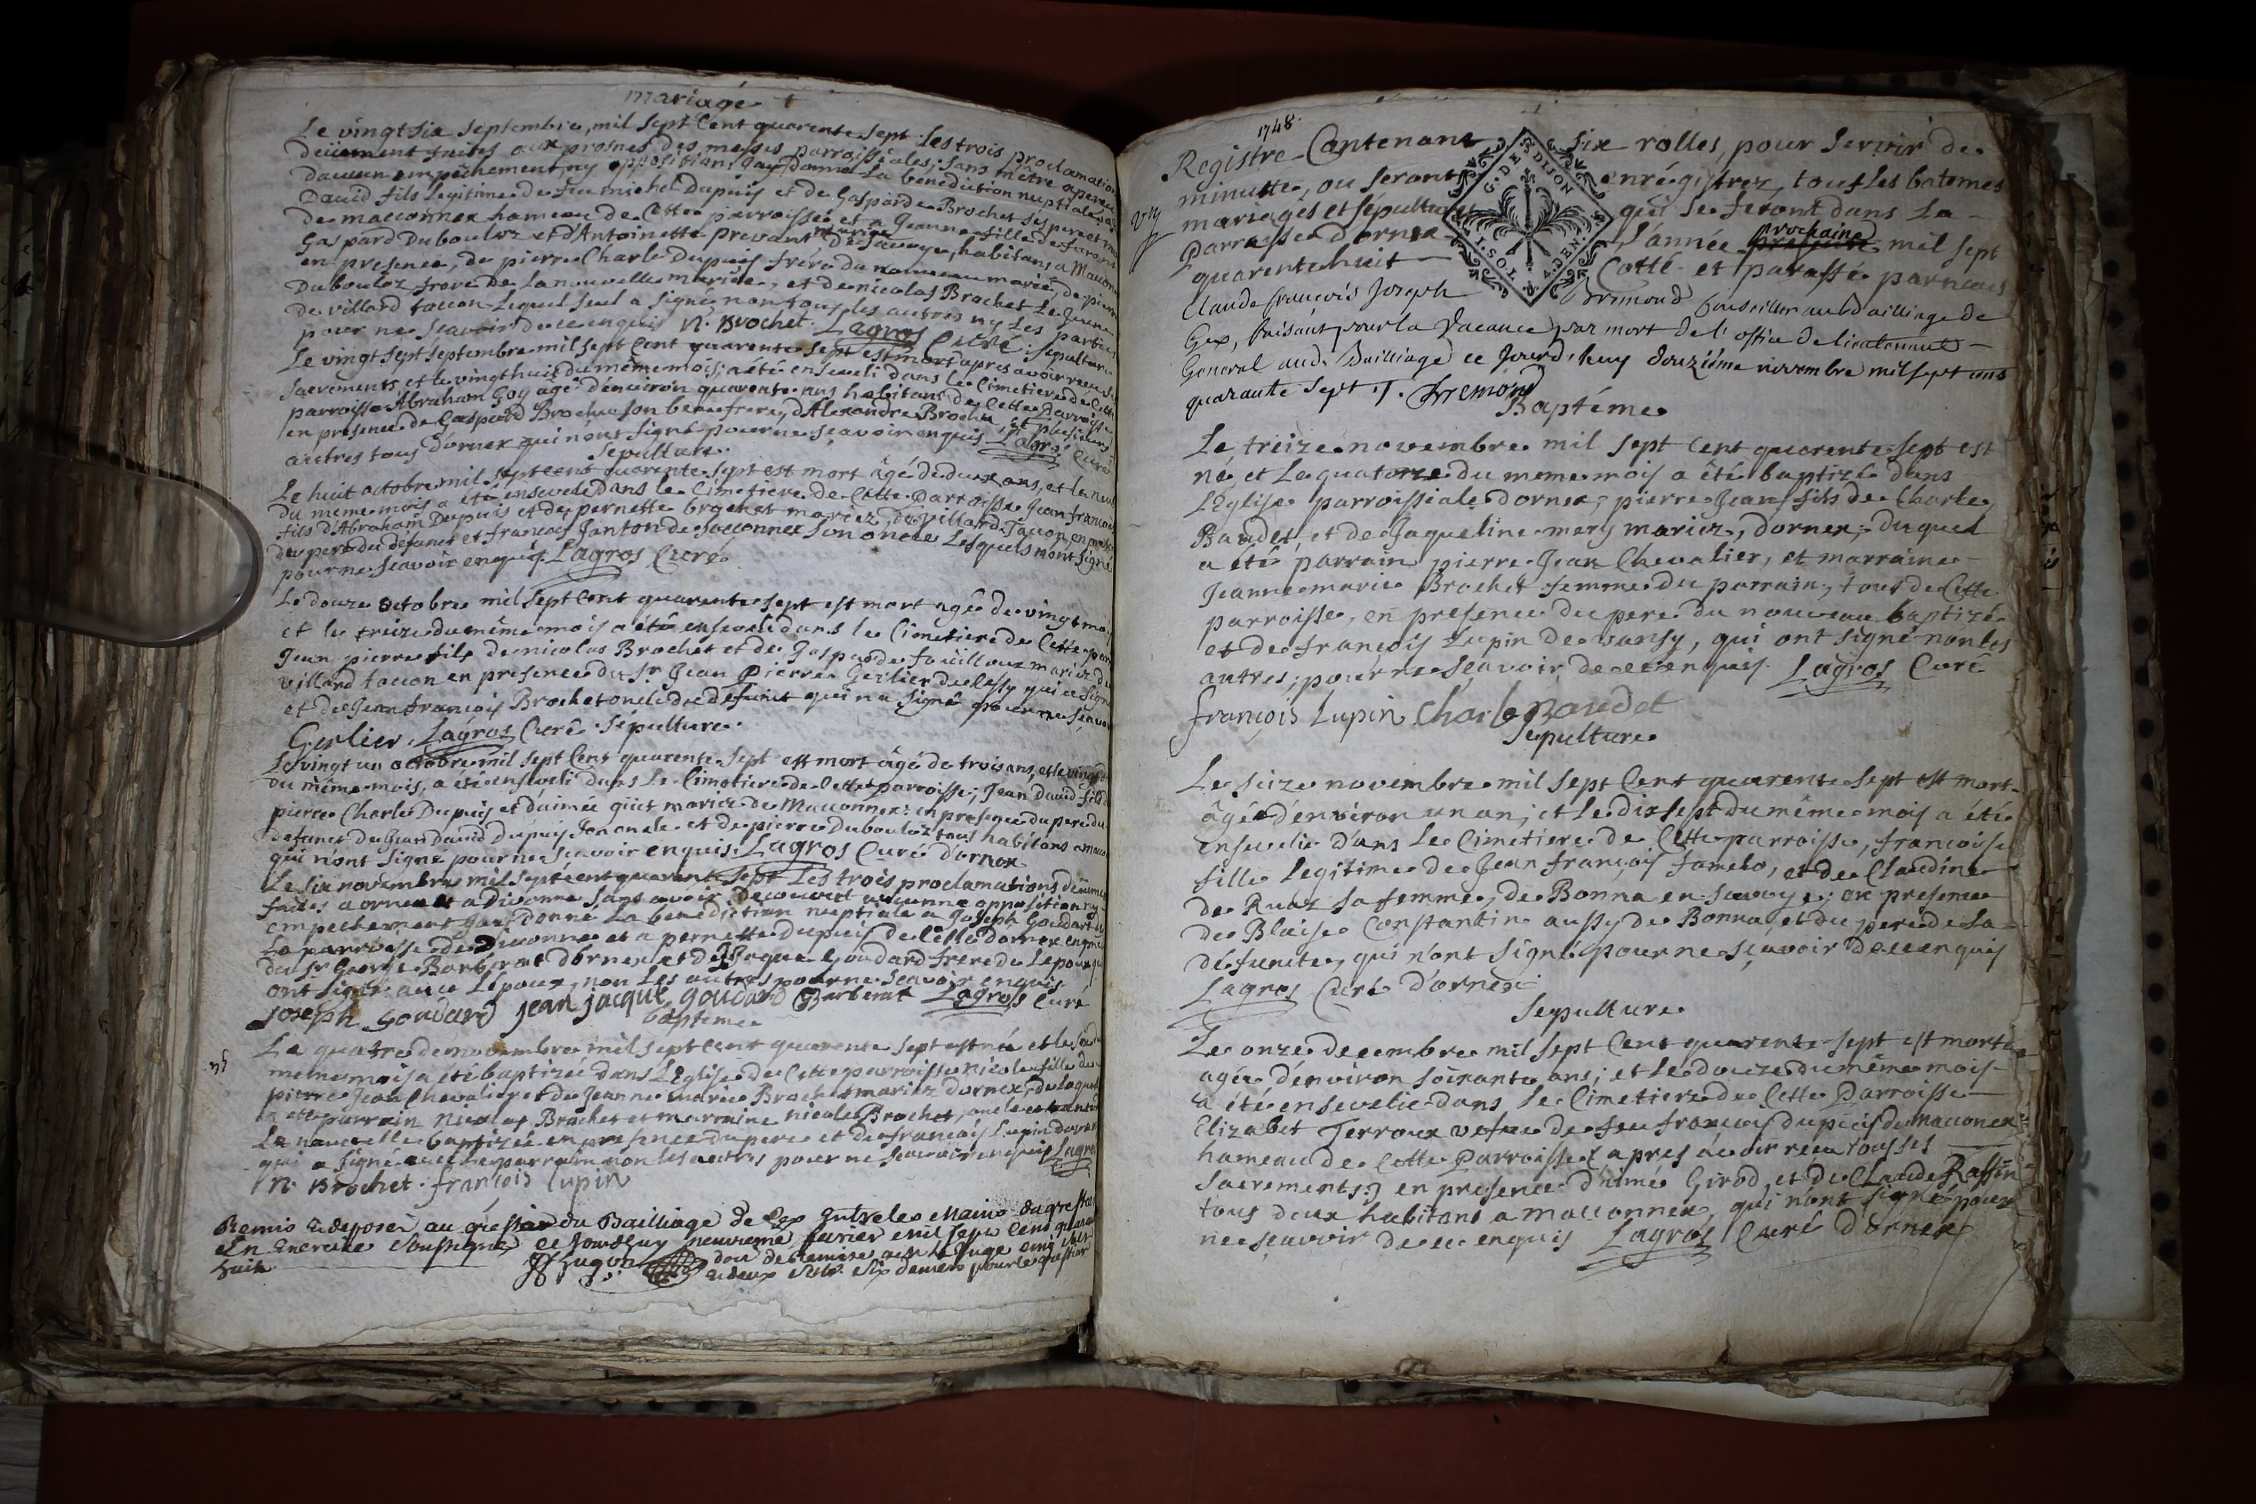 mariage
Le vingt six septembre, mil sept Cent quarente sept. Les trois proclamations
deüement faites aux prosnes des messes parroissiales; sans m'être aperceu
d'aucun empêchement, ny opposition jay donné La benediction nuptiale, a
David fils Legitime de feu michel Dupuis et de Gasparde Brochet ses pere et mere
de maconnex hameau de Cette parroisse et a jeanne fille de feu
Gaspard Dubouloz et d'Antoinette prevant mariez de Savoye, habitans a Maconnex
en presence, de pierre Charle Dupuis frere du nouveau marié, de pierre
Dubouloz frere de La nouvelle mariée, et de nicolas Brochet Le jeune
de villard tacon Lequel seul a signé non tous les autres ny les parties
pour ne scavoir de ce enquis N. Brochet. Lagros Curé. Sepulture
Le vingt sept septembre mil sept Cent quarente sept est mort apres avoir reçu
sacrements et le vingt huit du même mois; a été enseveli dans le Cimetiere de Cette
parroisse Abraham Goy agé d'environ quarente ans habitant de Cette Parroisse
en presence de Gaspard Brochet son beaufrere, d'Alexandre Brochet et plusieurs
autres tous d'ornex qui n'ont signé pour ne scavoir enquis Lagros Curé
Sepulture.
Le huit octobre mil sept cent quarente sept est mort âgé de deux ans, et le neuf
du meme mois a été enseveli dans le Cimetiere de Cette parroisse jean francois
fils d'Abraham Dupuis et de pernette brochet mariez, de villard Tacon, en presence
du pere du defunct et francois janton de Saconnex son oncle Lesquels n'ont signé
pour ne scavoir enquis. Lagros Curé.
Le douze octobre mil sept Cent quarente sept est mort agé de vingt mois
et le treize du même mois a été enseveli dans le Cimetiere de Cette parroisse
jean pierre fils de nicolas Brochet et de gasparde fouilloux mariez de
villard tacon en presence du Sr jean pierre Gerlier qui a signé
et de jean françois Brochet oncle du defunct qui n'a signé pour ne scavoir
Gerlier. Lagros Curé. Sepulture.
Le vingt un octobre mil sept Cent quarente sept est mort âgé de trois ans, et le vingt deux
du même mois, a été enseveli dans Le Cimetiere de Cette parroisse; jean David fils de
pierre Charle Dupuis et d'aimée mariez de Maconnex; en presence du pere du
defunct de jean David Dupuis son oncle et de pierre Dubouloz tous habitans a maconnex
qui n'ont signé pour ne scavoir enquis. Lagros Curé d'ornex
Le six novembre mil sept cent quarente sept Les trois proclamations deüement
faites a ornex et a Divonne sans avoir decouvert aucunne opposition ny
empechement jay donné La benediction nuptiale a joseph Goudard de
La parroisse de Divonne et a pernette dupuis de Celle dornex en presence
du Sr George Barberat dornex et de jaque Goudard frere de Lepoux qui
ont signé avec Lepoux, non Les autres pour ne Scavoir enquis
joseph goudard jean jacque goudard Barberat Lagros Curé
bapteme
Le quatre de novembre mil sept cent quarente sept est née et le
meme mois a été baptizée dans L'Eglise de Cette parroisse nicole fille de
pierre jean Chevalier et de jeanne marie Brochet mariez dornex; de laquelle
a été parrain nicolas Brochet et marraine nicole Brochet,
La nouvelle baptizée en presence du pere et de francois Lupin
qui a signé avec le parrain non les autres pour ne scavoir enquis Lagros
N. Brochet. françois Lupin
Remis et deposé au greffe du Bailliage de Gex entre les mains du greffier
en Exercice soussigné ce jourdhuy neuvieme fevrier mil sept Cent quarante
huit
1748.
Registre Contenant six rolles, pour servir de
minutte, ou seront enrégistrez, tous Les batemes
mariages et sépultures qui se feront dans La
Parroisse dornex L'année prochaine mil sept
quarente huit Cotté et paraffé par nous
Claude françois Joseph fremond Conseiller au Bailliage de
Gex, faisant pour la Vacance par mort de l'office de lieutenant
General aud. Bailliage ce jourd'huy douzième novembre mil sept cens
quarante sept. J. fremond
G. DE DIJON
I. SOL. 4. DEN.
Baptéme
Le treize novembre mil sept Cent quarente sept est
né, et Le quatorze du meme mois a êté baptizé dans
L'Eglise parroissiale dornex; pierre jean fils de Charle
Baudet, et de jaqueline mery mariez, dornex; duquel
a été parrain pierre jean Chevalier, et marraine
jeanne marie Brochet femme du parrain, tous de Cette
parroisse, en presence du pere du nouveau baptizé
et de françois Lupin de vansy, qui ont signé non les
autres; pour ne sçavoir de ce enquis. Lagros Curé
françois Lupin Charle Baudet
Sepulture
Le seize novembre mil sept Cent quarente sept est morte
âgée d'environ un an; et Le dix sept du même mois a été
ensevelie dans Le Cimetiere de Cette parroisse, francoise
fille Legitime de jean françois, et de Claudine
de Ruaz sa femme, de Bonna en Savoye; en presence
de Blaise Constantin aussy de Bonna, et du pere de La
defuncte, qui n'ont signé pour ne sçavoir de ce enquis
Lagros Curé d'ornex
Sepulture
Le onze decembre mil sept Cent quarente sept est morte
agée d'environ soixante ans; et Le douze du même mois
a été ensevelie dans Le Cimetiere de Cette Parroisse
Elizabet Terroux vefve de feu françois dupuis de Maconex
hameau de Cette Parroisse (apres avoir reçu tous ses
sacrements:) en présence d'aimé Girod, et de Claude Raffin
tous deux habitans a maconnex, qui n'ont signé pour
ne sçavoir de ce enquis Lagros Curé d'ornex